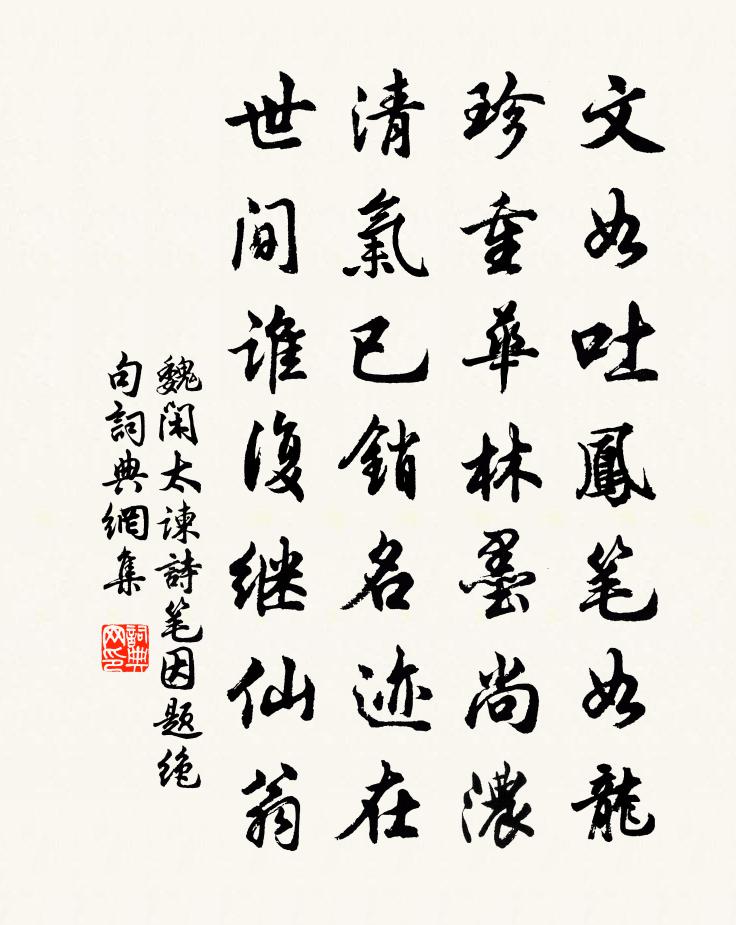 文如吐鳳笔如龍
珍重華林墨尚濃
清氣已銷名迹在
世间谁復继仙翁
魏闲太谏詩笔因题绝
句詞典網集
詞典